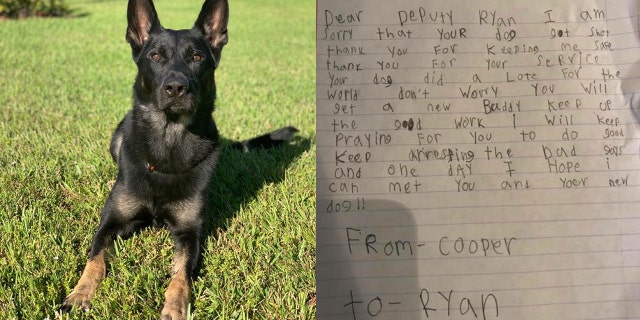 Dear Deputy Ryan I am
sorry that your dog got shot
thank you for keeping me safe
thank you for your service
Your dog did a lote for the
world don't worry you will
get a new Buddy keep up
the good work I will keep
praying for you to do good
keep arresting the bad guys
and one day I Hope i
can met you and your new
dog!!
From- cooper
to- Ryan